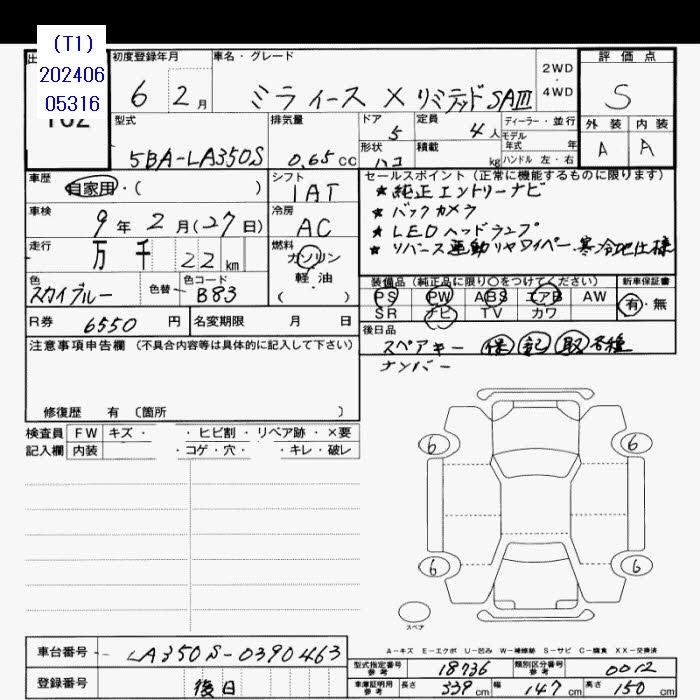 (T1)
202406
05316
初度登録年月
6 2月
車名・グレード
ミライース X リミテッド SAIII
2WD
・
4WD
評価点
S
外装 内装
A A
型式
5BA-LA350S
排気量
0.65 cc
ドア
5
定員
4人
形状
ハコ
積載
kg
ディーラー・並行
モデル
年式 年
ハンドル 左・右
車歴
自家用・( )
シフト
IAT
セールスポイント (正常に機能するものに限ります)
★純正エントリーナビ
★バックカメラ
★LEDヘッドランプ
★リバース連動リヤワイパー、寒冷地仕様
車検
9年 2月(27日)
冷房
AC
走行
万 千 22 km
燃料
ガソリン
軽・油
( )
色
スカイブルー
色替
色コード
B83
装備品 (純正品に限り○をつけてください)
PS PW ABS エアB AW
SR ナビ TV カワ
新車保証書
有・無
R券 6550 円
名変期限 月 日
後日品
スペアキー 保 記 取 各種
ナンバー
注意事項申告欄 (不具合内容等は具体的に記入して下さい)
修復歴 有 〔箇所 〕
検査員 FW キズ・ ・ヒビ割・リペア跡・×要
記入欄 内装 ・コゲ・穴・ ・キレ・破レ
6 6
6 6
スペア
A－キズ E－エクボ U－凹み W－補修跡 S－サビ C－腐食 XX－交換済
車台番号 LA350S-0390463
登録番号 後日
型式指定番号
参考
18736
類別区分番号
参考
0012
車庫証明用
参考
長さ 339 cm 幅 147 cm 高さ 150 cm